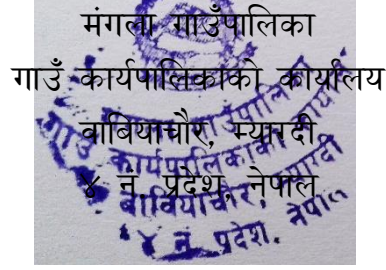 मंगला गाउँपालिका
गाउँ कार्यपालिकाको कार्यालय
बाबियाचौर, म्याग्दी
४ नं. प्रदेश, नेपाल
गाउँपालिका
गाउँ कार्यपालिकाको कार्यालय
बाबियाचौर, म्याग्दी
४ नं. प्रदेश, नेपाल